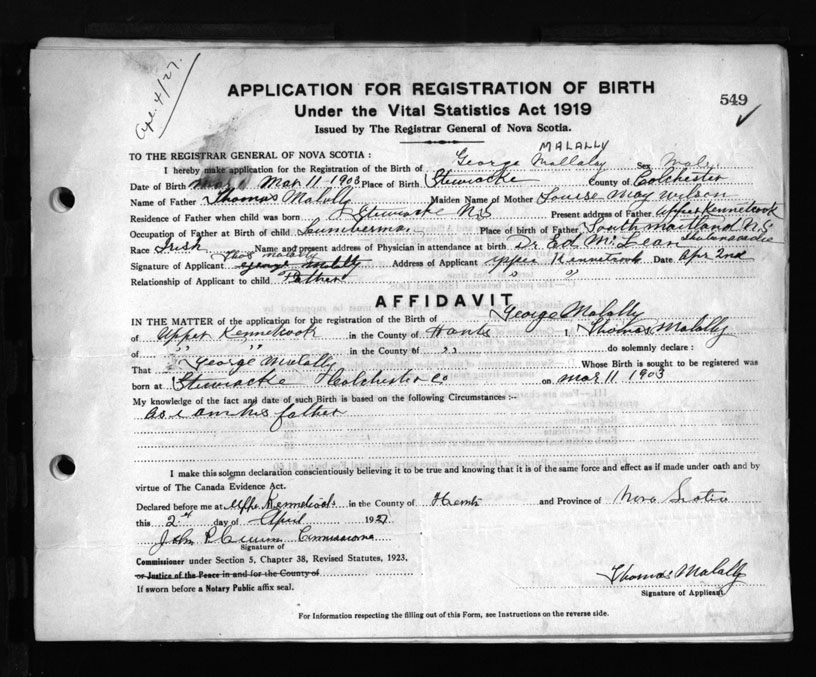 Apr. 4/27.
APPLICATION FOR REGISTRATION OF BIRTH
549
Under the Vital Statistics Act 1919
Issued by The Registrar General of Nova Scotia.
MALALLY
TO THE REGISTRAR GENERAL OF NOVA SCOTIA :
I hereby make application for the Registration of the Birth of George Mallaly Sex Male
Date of Birth Mar 11 1903 Place of Birth Stewiacke County of Colchester
Name of Father Thomas Malally Maiden Name of Mother Louise May Wilson
Residence of Father when child was born Stewiacke N.S Present address of Father Upper Kennetcook
Occupation of Father at Birth of child Lumberman Place of birth of Father South Maitland N.S
Race Irish Name and present address of Physician in attendance at birth Dr Ed. McLean Shubenacadie
Thos Malally
Signature of Applicant George Malally Address of Applicant Upper Kennetcook Date Apr 2nd
Relationship of Applicant to child Father " "
AFFIDAVIT
IN THE MATTER of the application for the registration of the Birth of George Malally
of Upper Kennetcook in the County of Hants I, Thomas Malally
of " " in the County of " do solemnly declare :
That George Malally Whose Birth is sought to be registered was
born at Stewiacke Colchester Co on Mar 11 1903
My knowledge of the fact and date of such Birth is based on the following Circumstances :--
as I am his father
I make this solemn declaration conscientiously believing it to be true and knowing that it is of the same force and effect as if made under oath and by
virtue of The Canada Evidence Act.
Declared before me at Upper Kennetcook in the County of Hants and Province of Nova Scotia
this 2nd day of April 1927
John P Commissioner
Signature of
Commissioner under Section 5, Chapter 38, Revised Statutes, 1923.
or Justice of the Peace in and for the County of
Thomas Malally
If sworn before a Notary Public affix seal.
Signature of Applicant
For Information respecting the filling out of this Form, see Instructions on the reverse side.